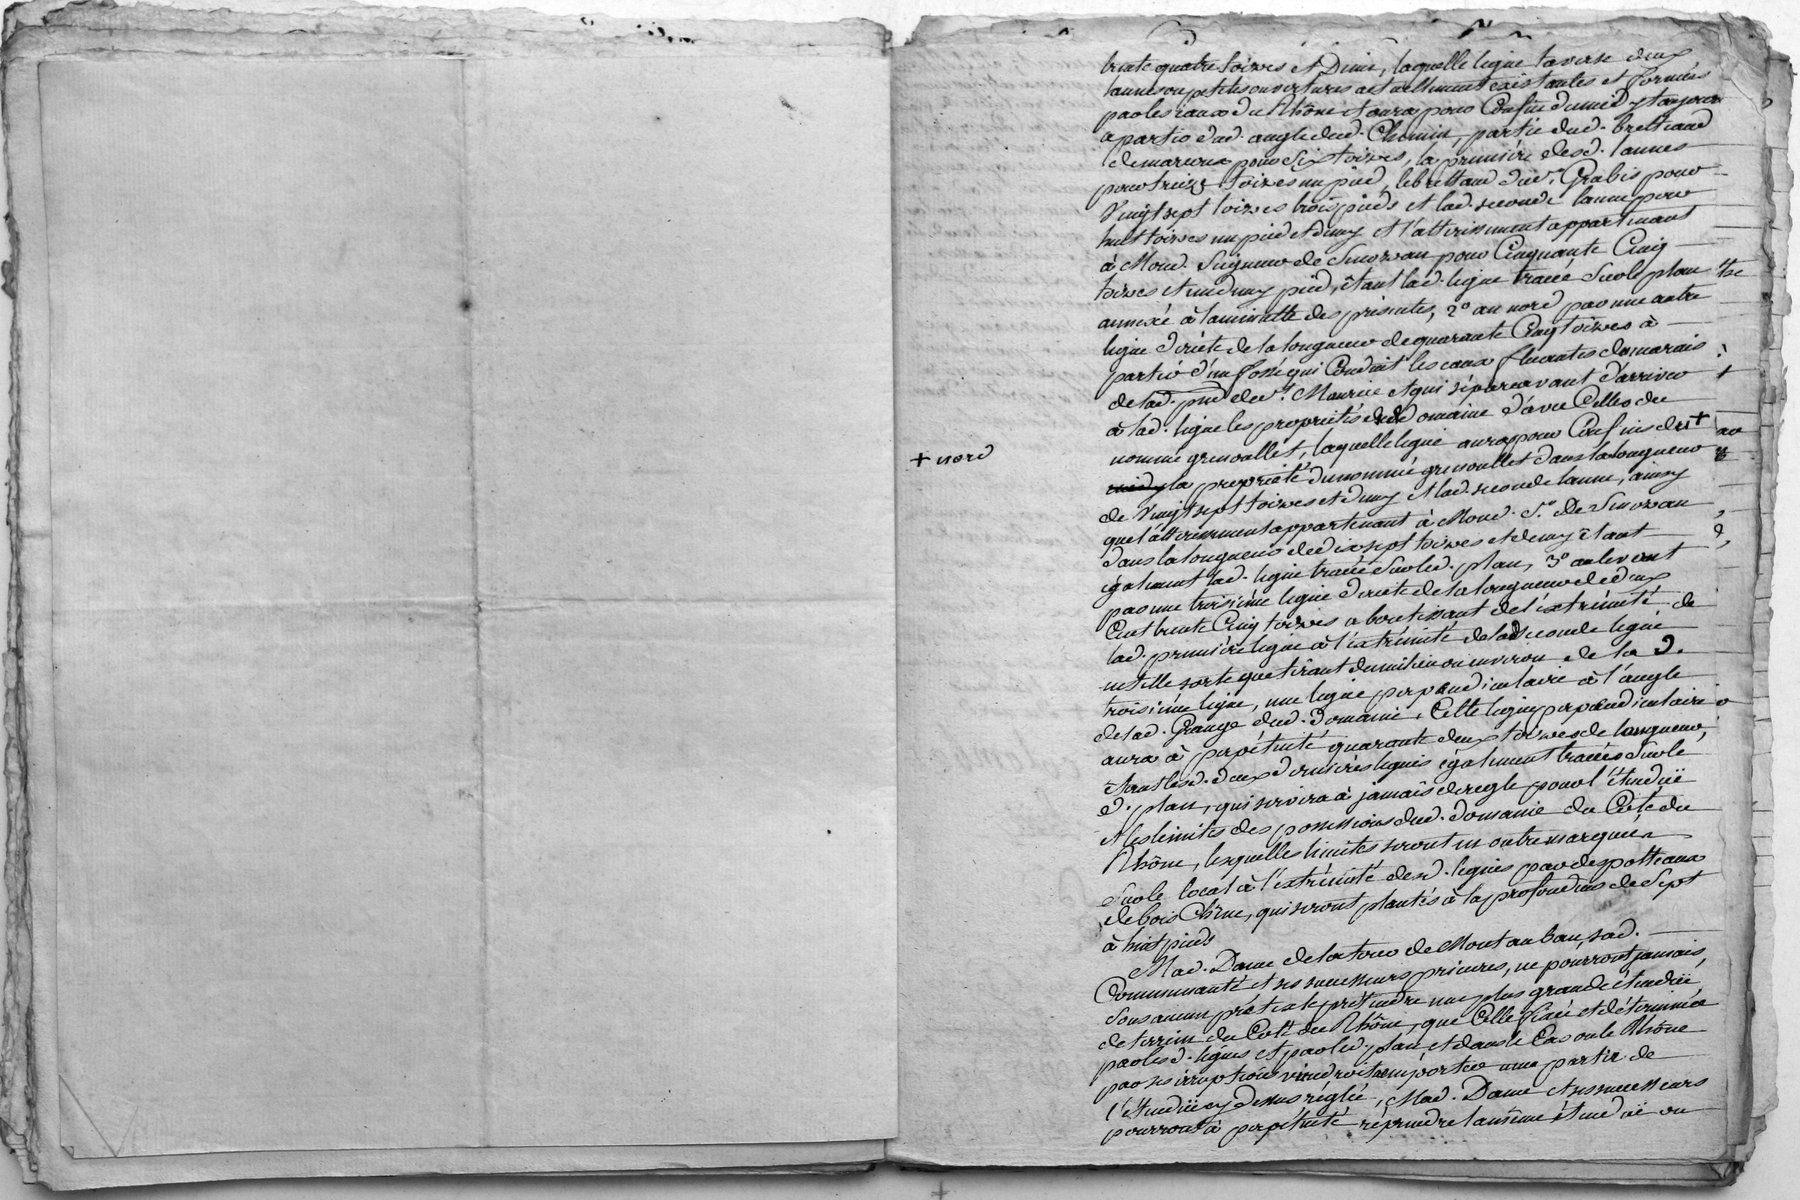 trente quatre toises et Demi, laquelle ligne traverse deux
launes ou petites ouvertures actuellement existantes et formées
par les eaux du Rhône et aura pour Confin du midy toujours
a partir dud. angle dud. Chemin, partie dud. brotteaud
demareux pour Six toises, la premiere desd. launes
pour treize toises un pied, le brottaud du Sr. Grabis pour
Vingt sept toises trois pieds et lad. seconde laune pour
huit toises un pied et demy et l'atterissement appartenant
à Mond. Seigneur de Senozan pour Cinquante Cinq
toises et un demy pied, étant lad. ligne tracée Sur le plan
annexé à la minutte des présentes, 2° au nord par une autre
ligne droite de la longueur de quarante Cinq toises à
partir d'un fossé qui Conduit les eaux fluentes du marais
de lad. pnte de St. Maurice et qui sépare avant d'arriver
à lad. ligne les propriétés dud. domaine d'avec Celles du
nommé grenoullet, laquelle ligne aura pour Confins du +
+ nord
midy la propriété du nommé grenoullet dans la longueur
de Vingt sept toises et demy et lad. seconde laune, ainsy
que l'atterissement appartenant à Mond. Sr. De Senozan
dans la longueur de dix sept toises et demy étant
également lad. ligne tracée Sur led. plan, 3° au levant
par une troisième ligne droite de la longueur de deux
Cent trente Cinq toises aboutissant de l'extrémité de
lad. première ligne à l'extrémité de lad. seconde ligne
en telle sorte que tirant du milieu ou environ de la d.
troisième ligne, une ligne perpendiculaire à l'angle
de lad. Grange dud. Domaine, Cette ligne perpendiculaire
aura à perpétuité quarante deux toises de longueur,
étant lesd. deux dernières lignes également tracées Sur le
d. plan, qui servira à jamais de regle pour l'étenduë
et les limites des possessions dud. domaine du Coté du
Rhône, lesquelles limites seront en outre marquées
Sur le local à l'extrémité desd. lignes par des potteaux
de bois Chêne, qui seront plantés à la profondeur de Sept
à huit pieds
Mad. Dame de la tour de Montauban, sad.
Communauté et ses successeurs prieures, ne pourront jamais,
Sous aucun prétexte prétendre une plus grande étenduë
de terrein du Coté du Rhône, que Celle fixée et déterminée
par lesd. lignes et par led. plan et dans le Cas ou le Rhône
par ses irruptions viendroit emporter une partie de
l'étenduë cy dessus réglée, Mad. Dame et ses successeurs
pourront à perpétuité reprendre la même étenduë ou